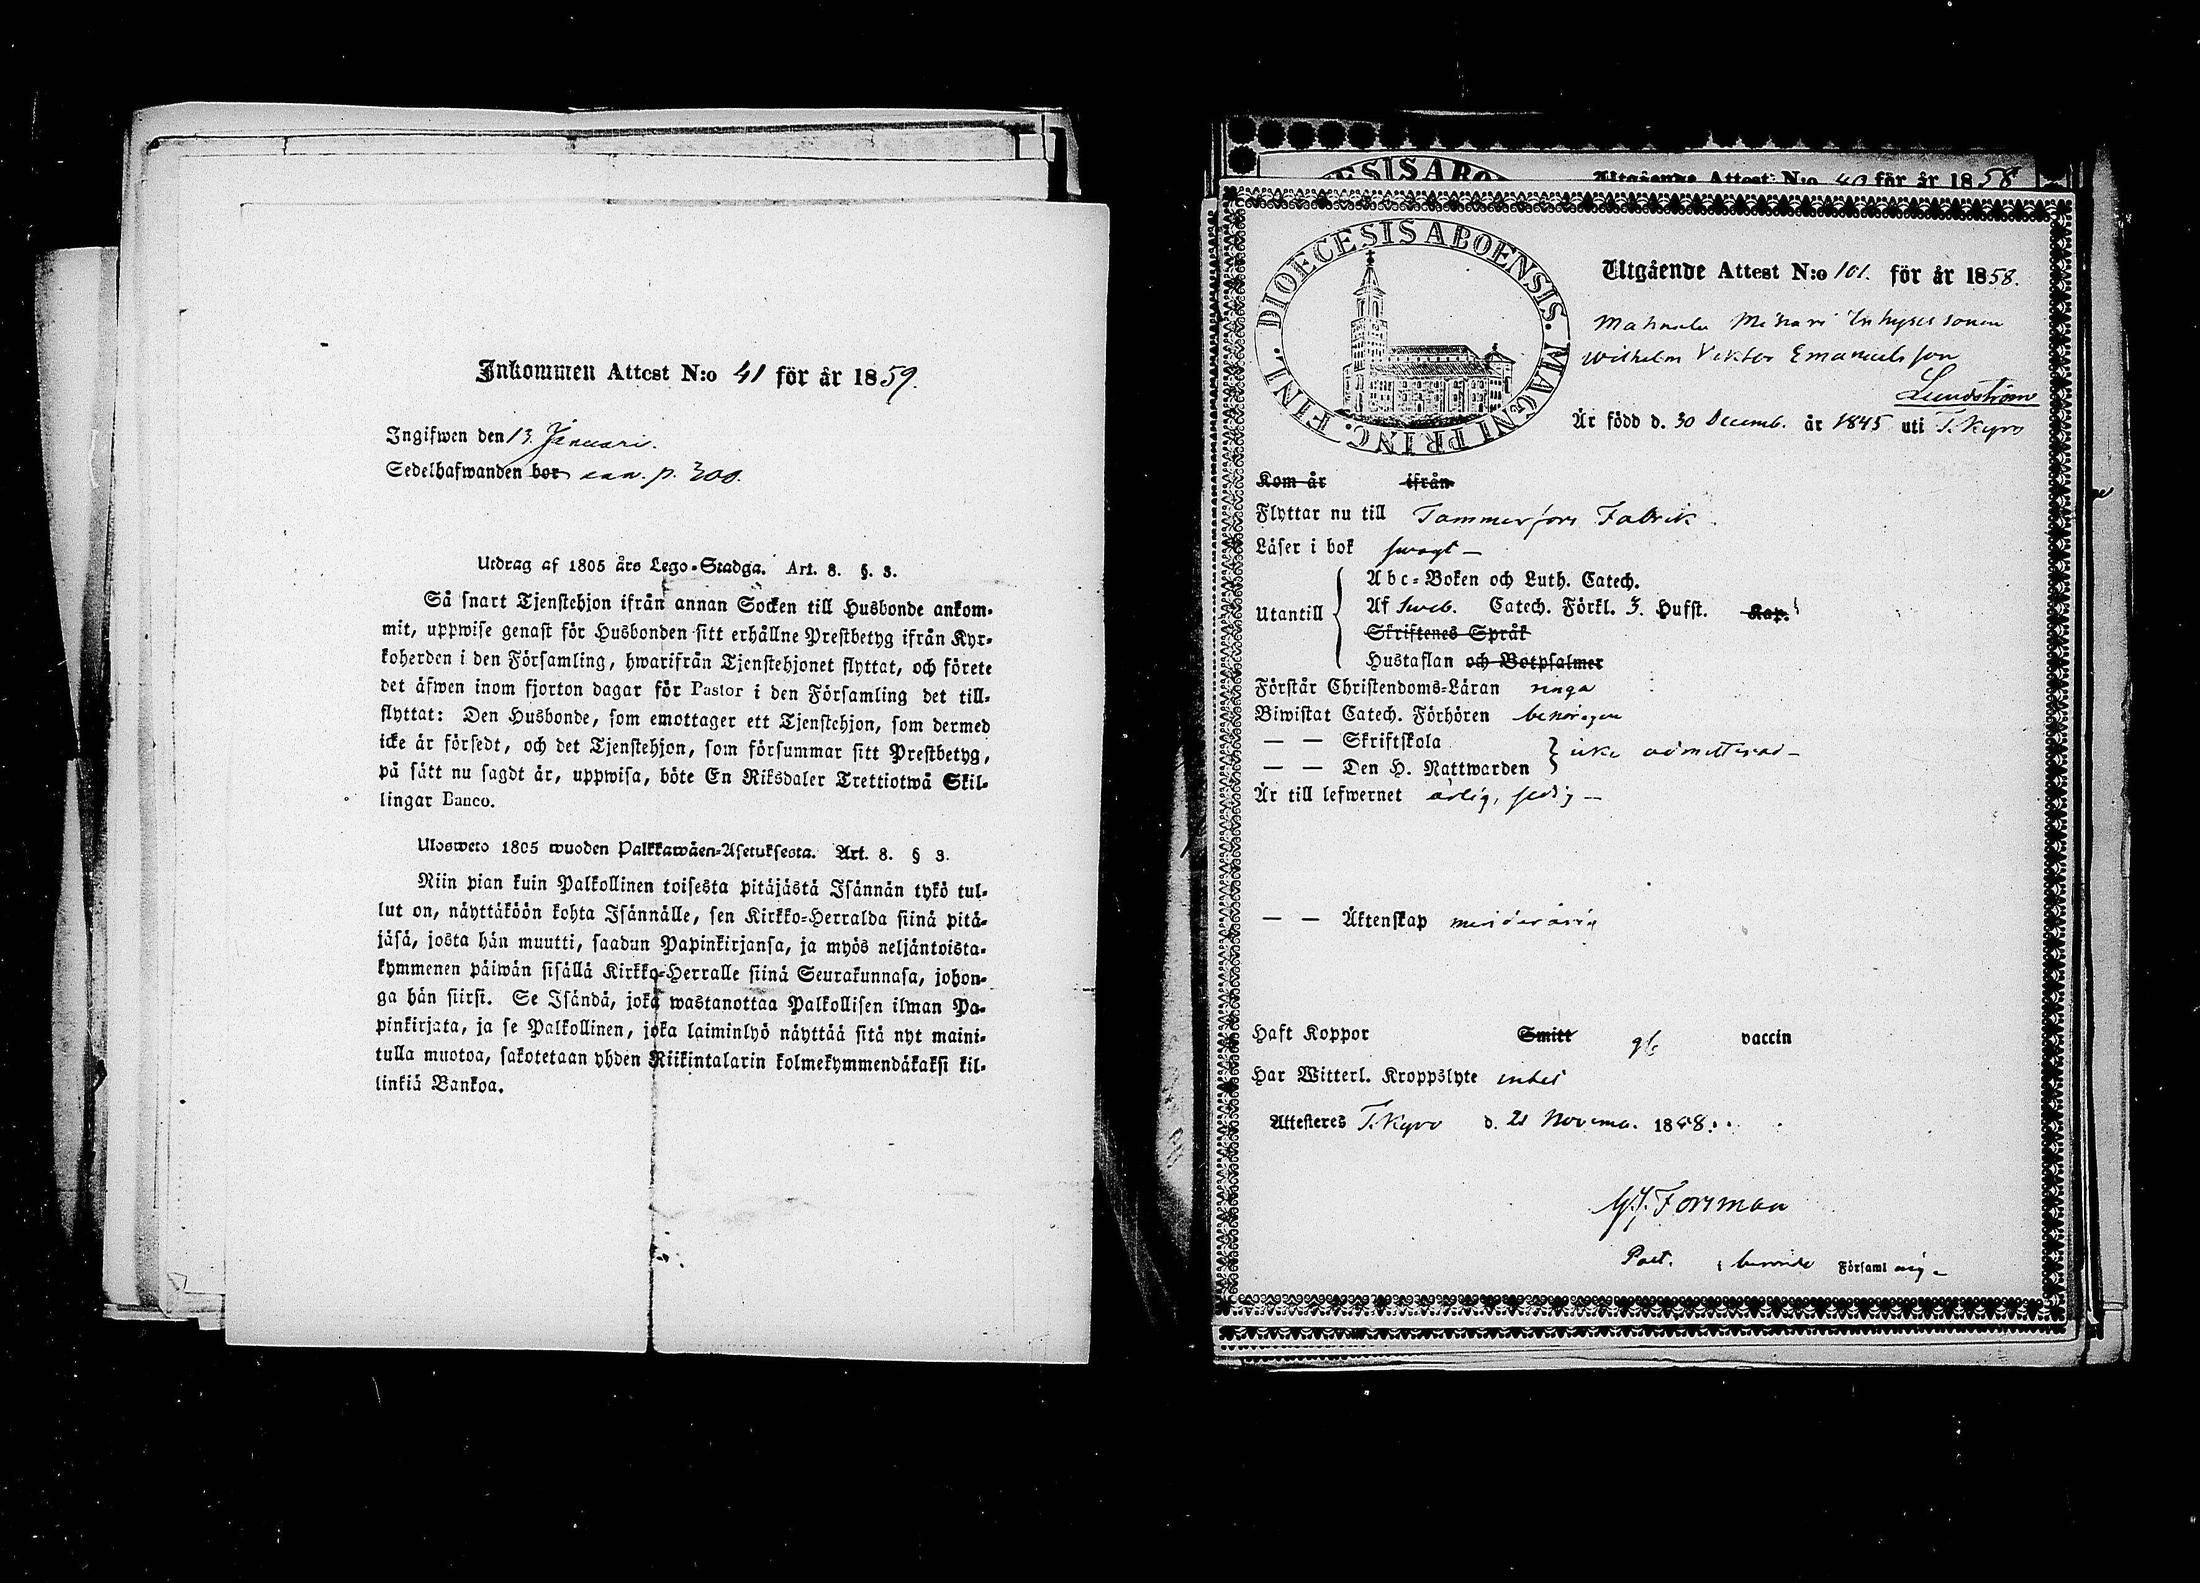 Inkommen Attest N:o 41 för år 1859.
Ingifwen den 13. Januari.
Sedelhafwanden bor p. 300.
Utdrag af 1805 års Lego-Stadga. Art. 8. §. 3.
Så snart Tjenstehjon ifrån annan Socken till Husbonde ankom-
mit, uppwise genast för Husbonden sitt erhållne Prestbetyg ifrån Kyr-
koherden i den Församling, hwarifrån Tjenstehjonet flyttat, och förete
det äfwen inom fjorton dagar för Pastor i den Församling det till-
flyttat: Den Husbonde, som emottager ett Tjenstehjon, som dermed
icke är försedt, och det Tjenstehjon, som försummar sitt Prestbetyg,
på sätt nu sagdt är, uppwisa, böte En Riksdaler Trettiotwå Skil-
lingar Banco.
Ulosweto 1805 wuoden Palkkawäen-Asetuksesta. Art. 8. § 3.
Niin pian kuin Palkollinen toisesta pitäjästä Isännän tykö tul-
lut on, näyttäköön kohta Isännälle, sen Kirkko-Herralda siinä pitä-
jäsä, josta hän muutti, saadun Papinkirjansa, ja myös neljäntoista-
kymmenen päiwän sisällä Kirkko-Herralle siinä Seurakunnasa, johon-
ga hän siirsi. Se Isändä, joka wastanottaa Palkollisen ilman Pa-
pinkirjata, ja se Palkollinen, joka laiminlyö näyttää sitä nyt maini-
tulla muotoa, sakotetaan yhden Riikintalarin kolmekymmendäkaksi kil-
linkiä Bankoa.
ESIS ABO
Utgående Attest N:o 40 för år 1858
DIOECESIS ABOENSIS. MAGNI PRINC. FINL.
Utgående Attest N:o 101. för år 1858.
Inhyses sonen
Wilhelm Viktor Emanuelsson
Lundström
Är född d. 30 Decemb. år 1845 uti T. Kyro
Kom år ifrån
Flyttar nu till Tammerfors Fabrik.
Läser i bok swagt –
Abc-Boken och Luth. Catech.
Utantill Af Sweb. Catech. Förkl. 3. Hufst. Kap.
Skriftenes Språk
Hustaflan och Botpsalmer
Förstår Christendoms-Läran ringa
Biwistat Catech. Förhören behörigen
— — Skriftskola
— — Den H. Nattwarden } icke admitterad –
Är till lefwernet ärlig, sedig –
— — Äktenskap minderårig
Haft Koppor Smitt vaccin
Har Witterl. Kroppslyte intet
Attesteres T. Kyro d. 21 Novemb. 1858.
Forsman
Past. i berörde Församling –